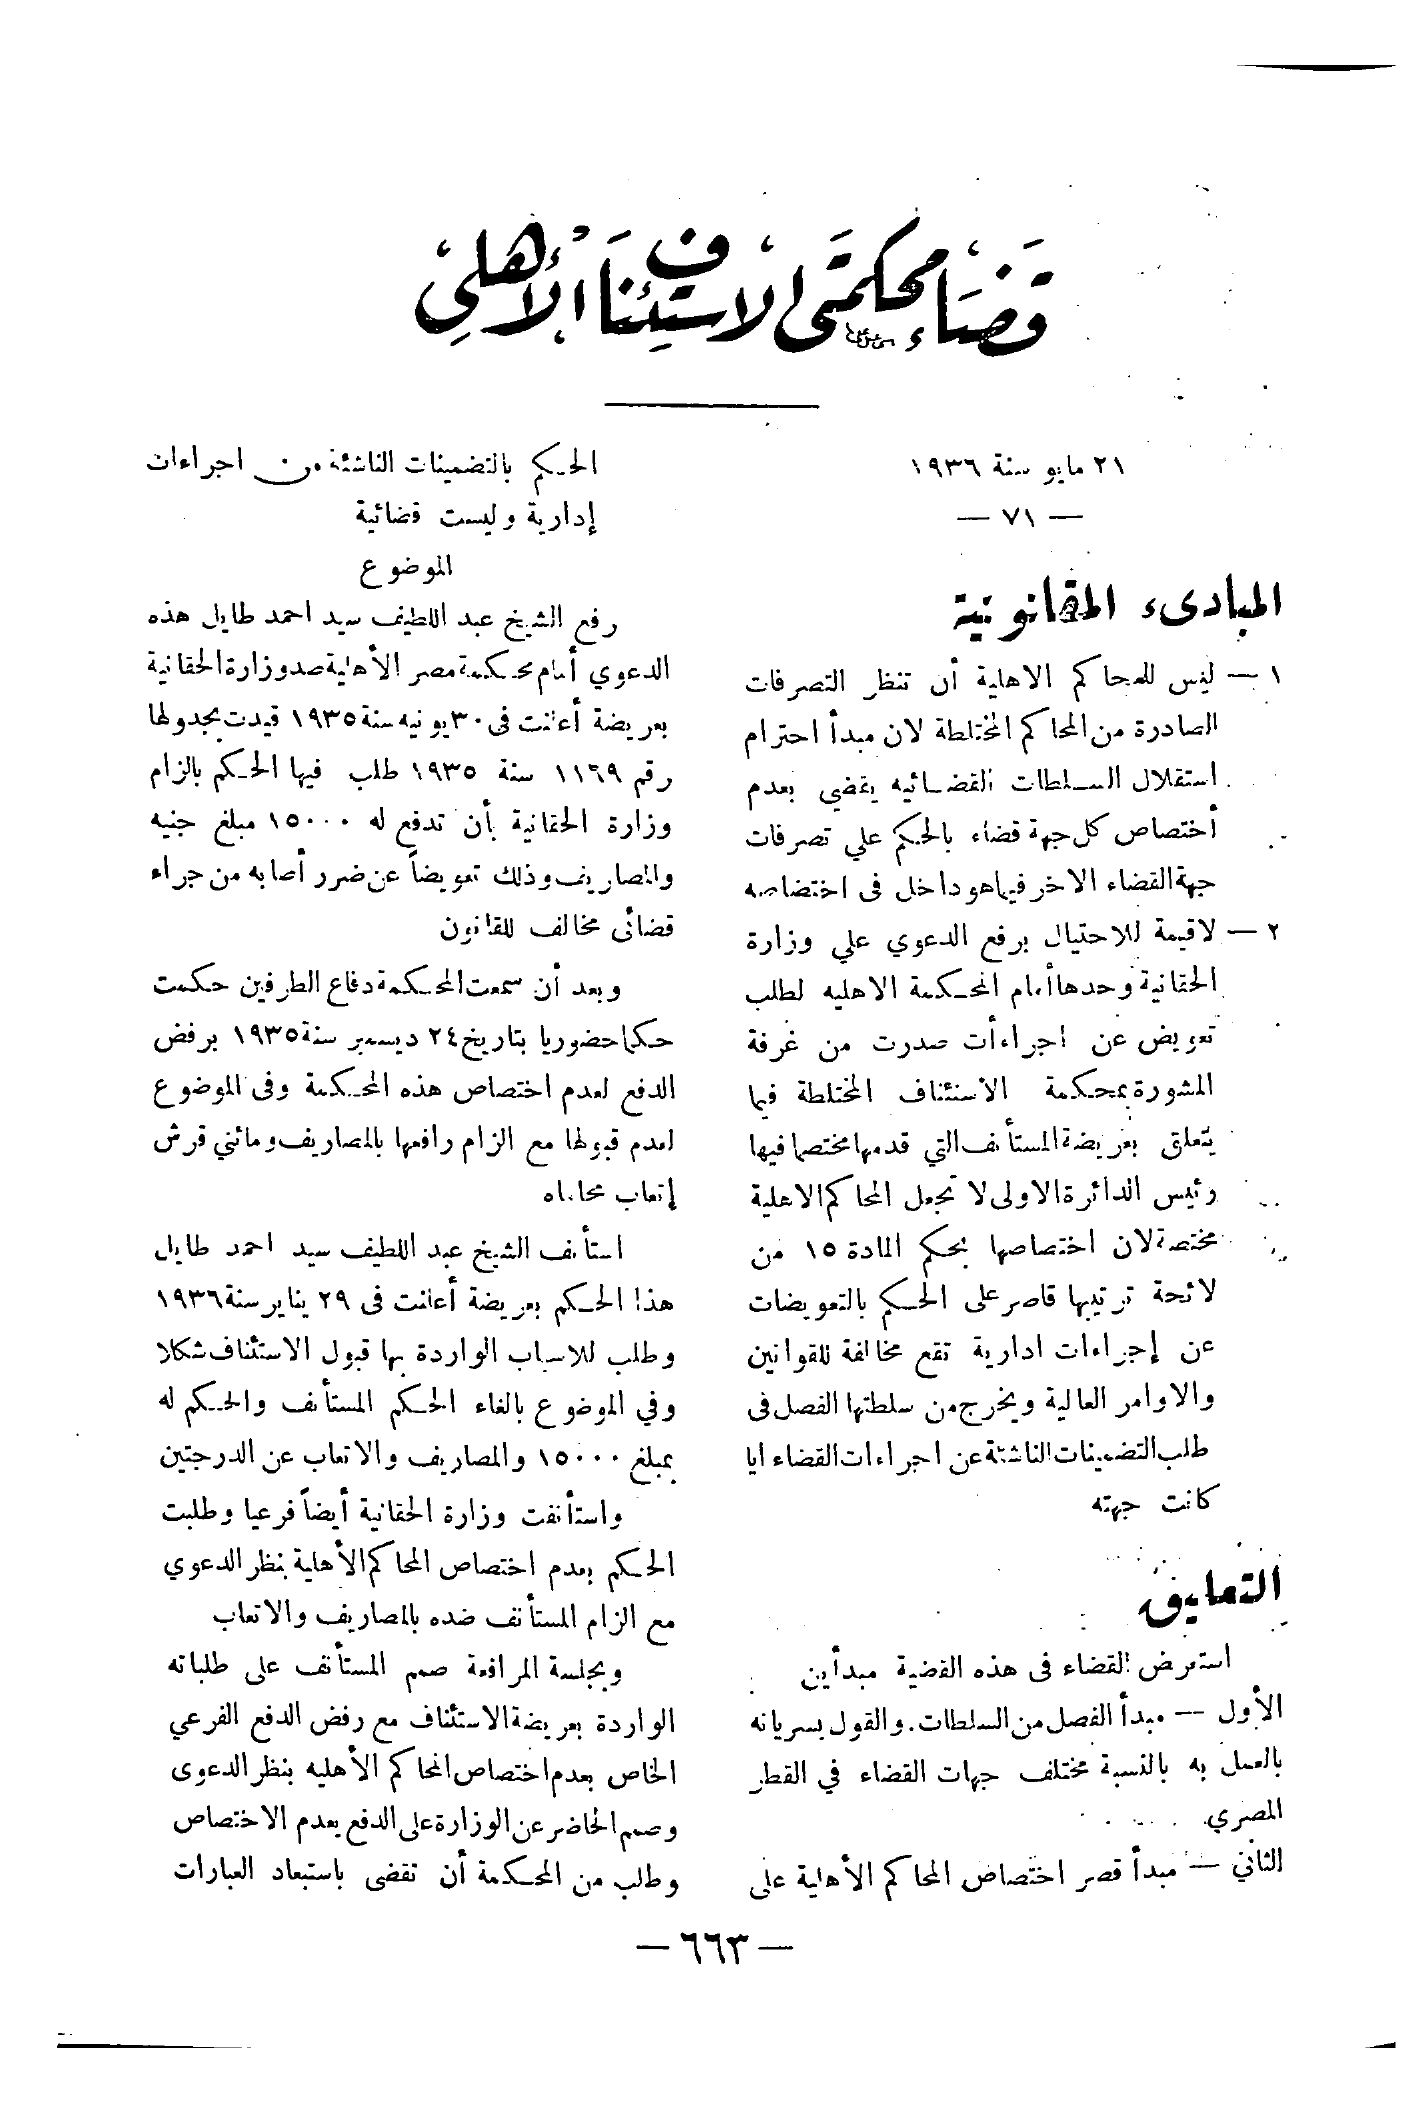 قضاء محكمتى الاستئناف الأهلى
٢١ مايو سنة ١٩٣٦
— ٧١ —
المبادىء القانونية
١ — ليس للمحاكم الاهلية أن تنظر التصرفات
الصادرة من المحاكم المختلطة لان مبدأ احترام
استقلال السلطات القضائيه يقضي بعدم
أختصاص كل جهة قضاء بالحكم علي تصرفات
جهة القضاء الاخر فيما هو داخل فى اختصاصه
٢ — لا قيمة للاحتيال برفع الدعوي علي وزارة
الحقانية وحدها أمام المحكمة الاهليه لطلب
تعويض عن اجراءأت صدرت من غرفة
المشورة بمحكمة الاستئناف المختلطة فيما
يتعلق بعريضة المستأنف التي قدمها مختصما فيها
رئيس الدائرة الاولى لا تجعل المحاكم الاهلية
مختصة لان اختصاصها بحكم المادة ١٥ من
لائحة ترتيبها قاصر على الحكم بالتعويضات
عن إجراءات ادارية تقع مخالفة للقوانين
والاوامر العالية ويخرج من سلطتها الفصل فى
طلب التضمينات الناشئة عن اجراءات القضاء ايا
كانت جهته
التعليق
استعرض القضاء فى هذه القضية مبدأين
الأول — مبدأ الفصل من السلطات. والقول بسريانه
بالعمل به بالنسبة مختلف جهات القضاء في القطر
المصري.
الثاني — مبدأ قصر اختصاص المحاكم الأهلية على
الحكم بالتضمينات الناشئة من اجراءات
إدارية وليست قضائية
الموضوع
رفع الشيخ عبد اللطيف سيد احمد طايل هذه
الدعوي أمام محكمة مصر الأهلية ضد وزارة الحقانية
بعريضة أعلنت فى ٣٠ يونيه سنة ١٩٣٥ قيدت بجدولها
رقم ١١٦٩ سنة ١٩٣٥ طلب فيها الحكم بالزام
وزارة الحقانية بأن تدفع له ١٥٠٠٠ مبلغ جنيه
والمصاريف وذلك تعويضاً عن ضرر أصابه من جراء
قضائى مخالف للقانون
وبعد أن سمعت المحكمة دفاع الطرفين حكمت
حكما حضوريا بتاريخ ٢٤ ديسمبر سنة ١٩٣٥ برفض
الدفع لعدم اختصاص هذه المحكمة وفى الموضوع
لعدم قبولها مع الزام رافعها بالمصاريف ومائتي قرش
إتعاب محاماه
استأنف الشيخ عبد اللطيف سيد احمد طايل
هذا الحكم بعريضة أعلنت فى ٢٩ يناير سنة ١٩٣٦
وطلب للاسباب الواردة بها قبول الاستئناف شكلا
وفي الموضوع بالغاء الحكم المستأنف والحكم له
بمبلغ ١٥٠٠٠ والمصاريف والاتعاب عن الدرجتين
واستأنفت وزارة الحقانية أيضاً فرعيا وطلبت
الحكم بعدم اختصاص المحاكم الأهلية بنظر الدعوي
مع الزام المستأنف ضده بالمصاريف والاتعاب
وبجلسة المرافعة صمم المستأنف على طلباته
الواردة بعريضة الاستئناف مع رفض الدفع الفرعي
الخاص بعدم اختصاص المحاكم الأهليه بنظر الدعوى
وصمم الحاضر عن الوزارة على الدفع بعدم الاختصاص
وطلب من المحكمة أن تقضى باستبعاد العبارات
— ٦٦٣ —